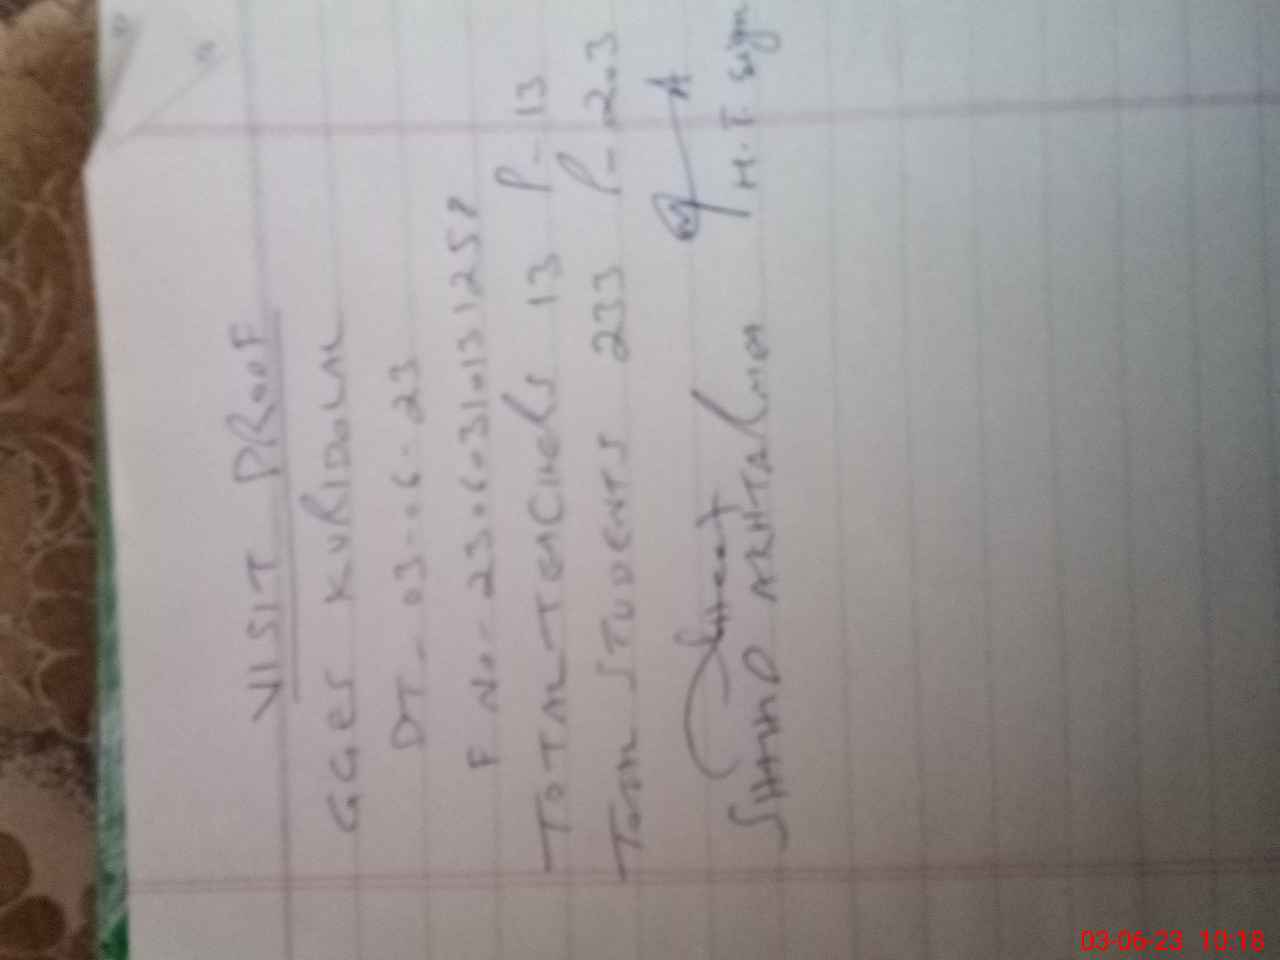 VISIT PROOF
GGES KURIDALAL
DT - 03-06-23
F No - 23060310131258
TOTAL TEACHERS 13 P-13
TOTAL STUDENTS 233 P-203
SHAHID AKHTAR H.T. Sign
03-06-23 10:18